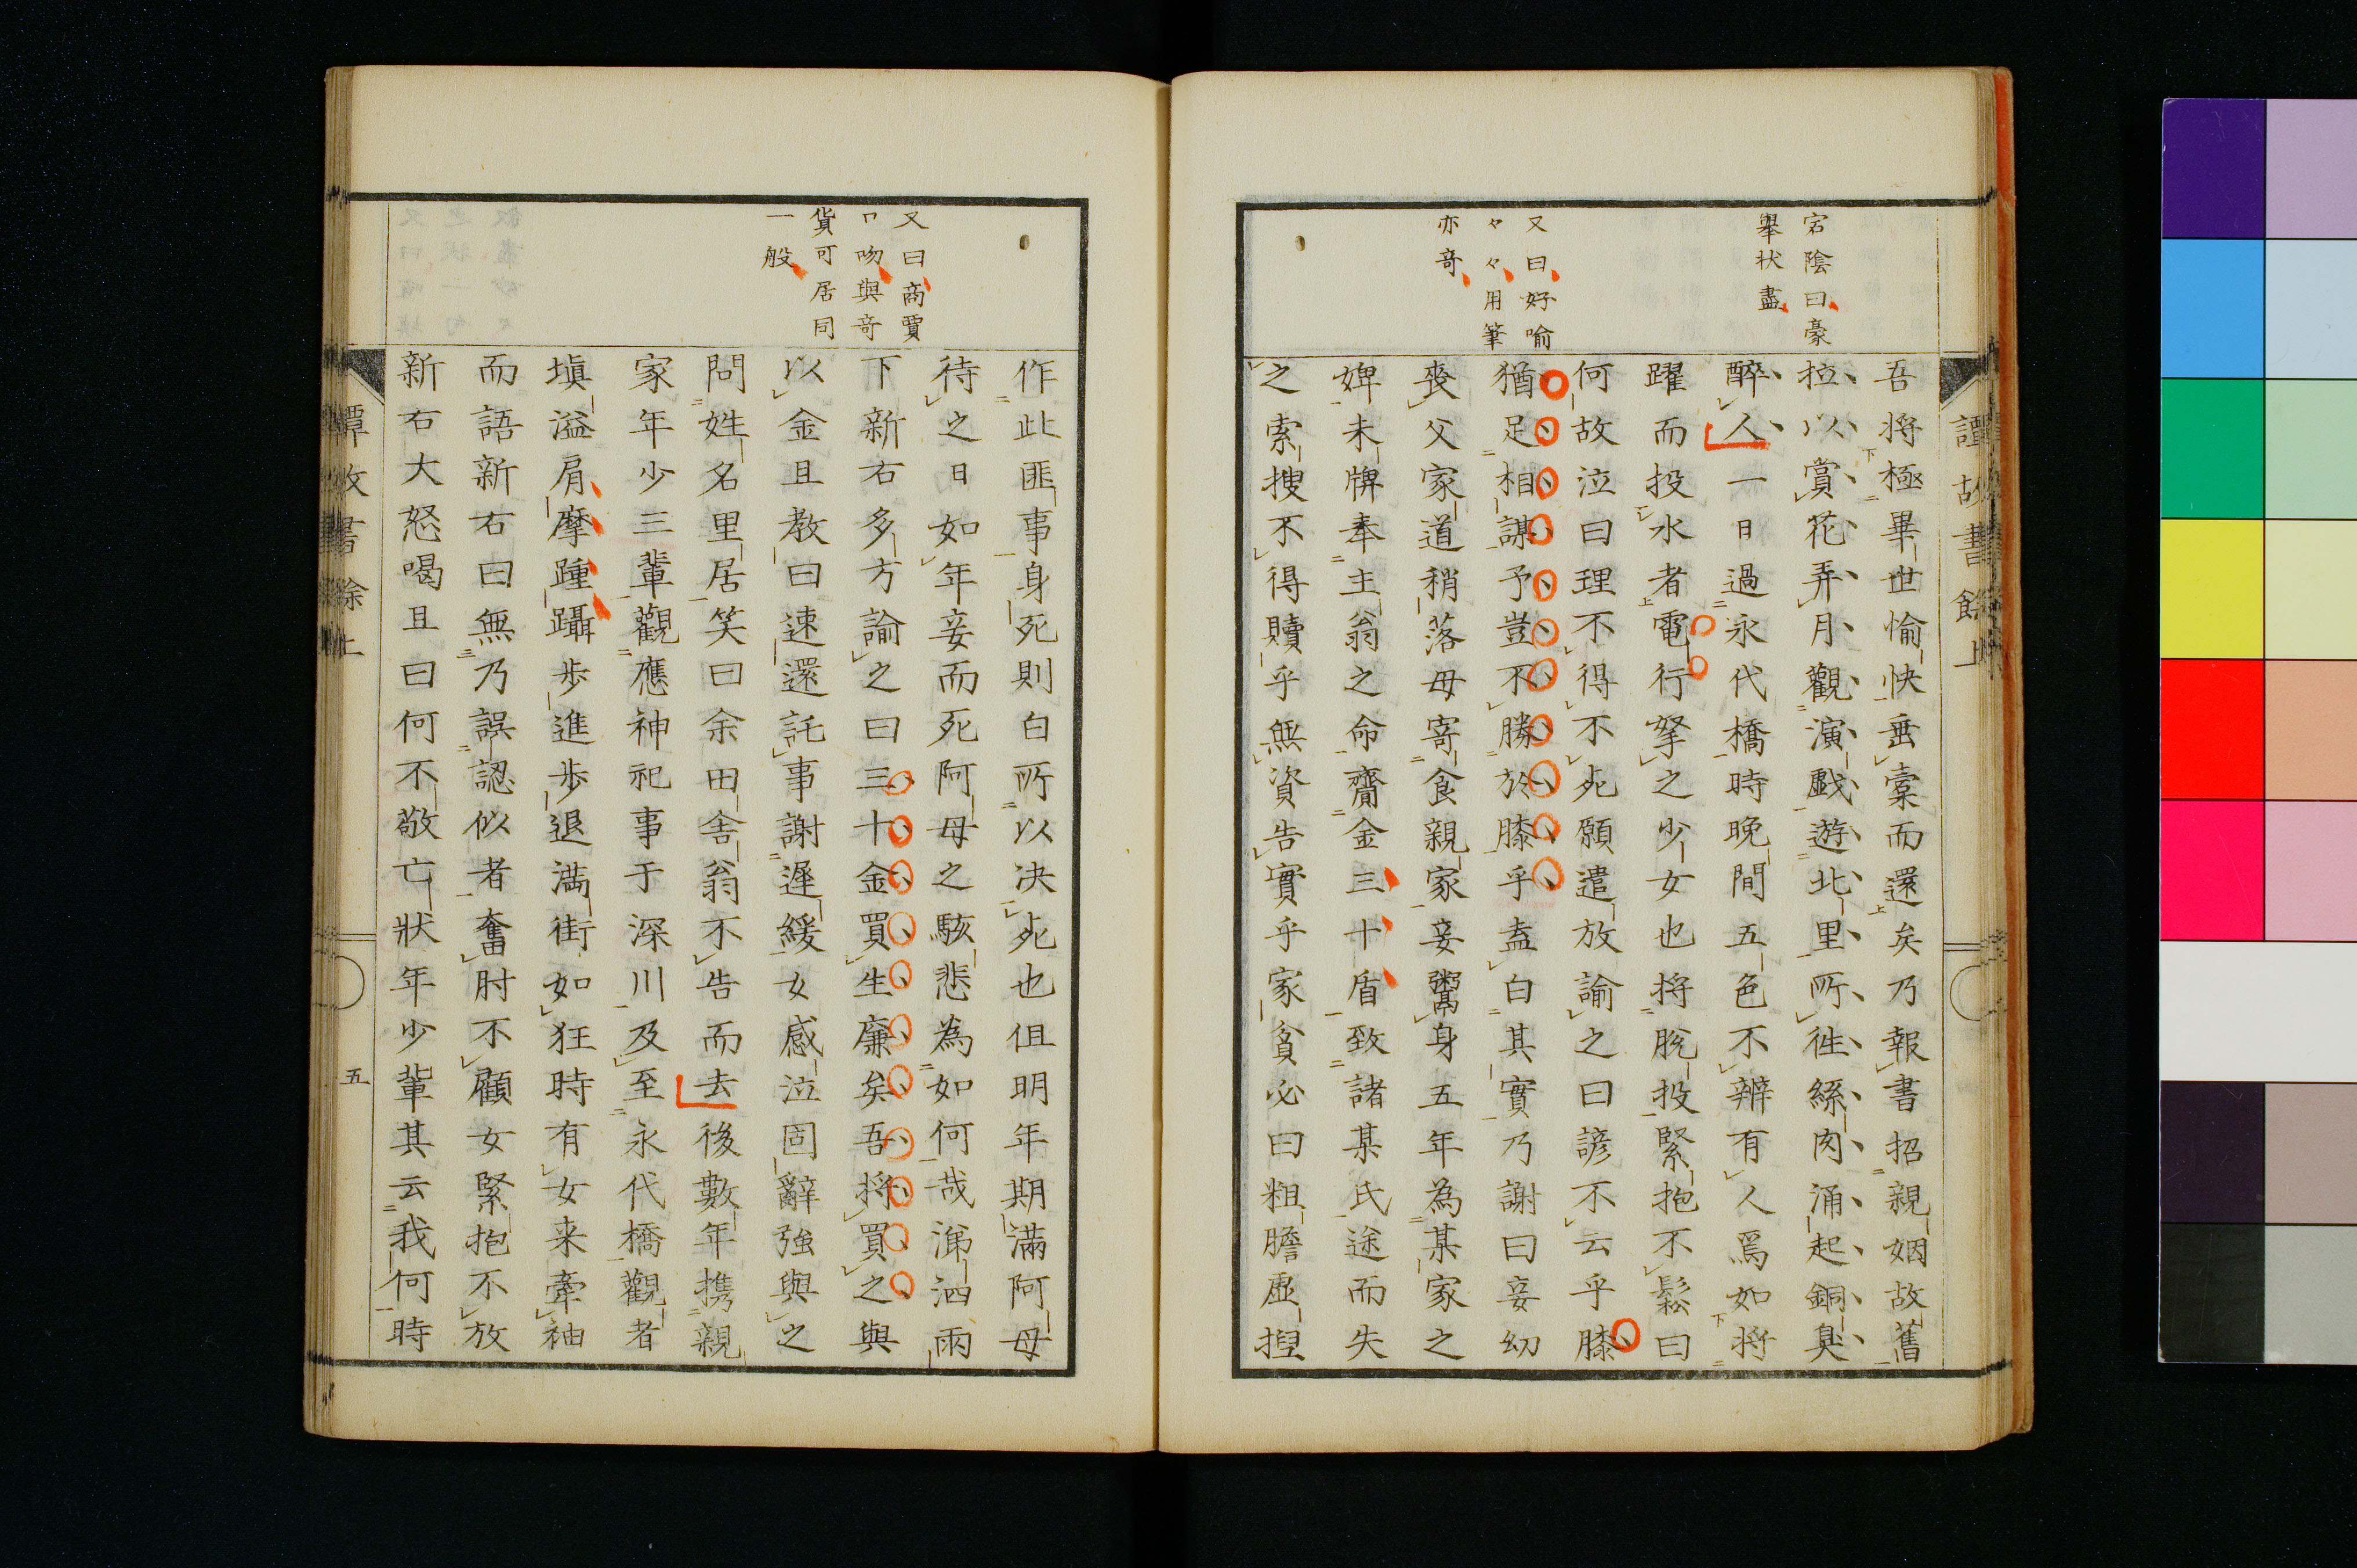 譚故書餘上
宕陰曰豪
擧狀盡
又曰好喻
々々用筆
亦竒
吾將極畢世愉快垂橐而還矣乃報書招親姻故舊
拉以賞花弄月觀演戯遊北里所徃絲肉涌起銅臭
醉人一日過永代橋時晚間五色不辨有人焉如將
躍而投水者電行拏之少女也將脫投緊抱不鬆曰
何故泣曰理不得不死願遣放諭之曰諺不云乎膝
猶足相謀予豈不勝於膝乎盍白其實乃謝曰妾幼
喪父家道稍落母寄食親家妾鬻身五年為某家之
婢未牌奉主翁之命齎金三十盾致諸某氏途而失
之索搜不得贖乎無資告實乎家貧必曰粗膽虛揑
又曰商賈
口吻與竒
貨可居同
一般
作此匪事身死則白所以决死也但明年期滿阿母
待之日如年妾而死阿母之駭悲為如何哉涕泗雨
下新右多方諭之曰三十金買生廉矣吾將買之與
以金且教曰速還託事謝遲緩女感泣固辭強與之
問姓名里居笑曰余田舍翁不告而去後數年携親
家年少三輩觀應神祀事于深川及至永代橋觀者
塡溢肩摩踵躡步進步退滿街如狂時有女来牽袖
而語新右曰無乃誤認似者奮肘不顧女緊抱不放
新右大怒喝且曰何不敬亡狀年少輩其云我何時
譚故書餘上
五